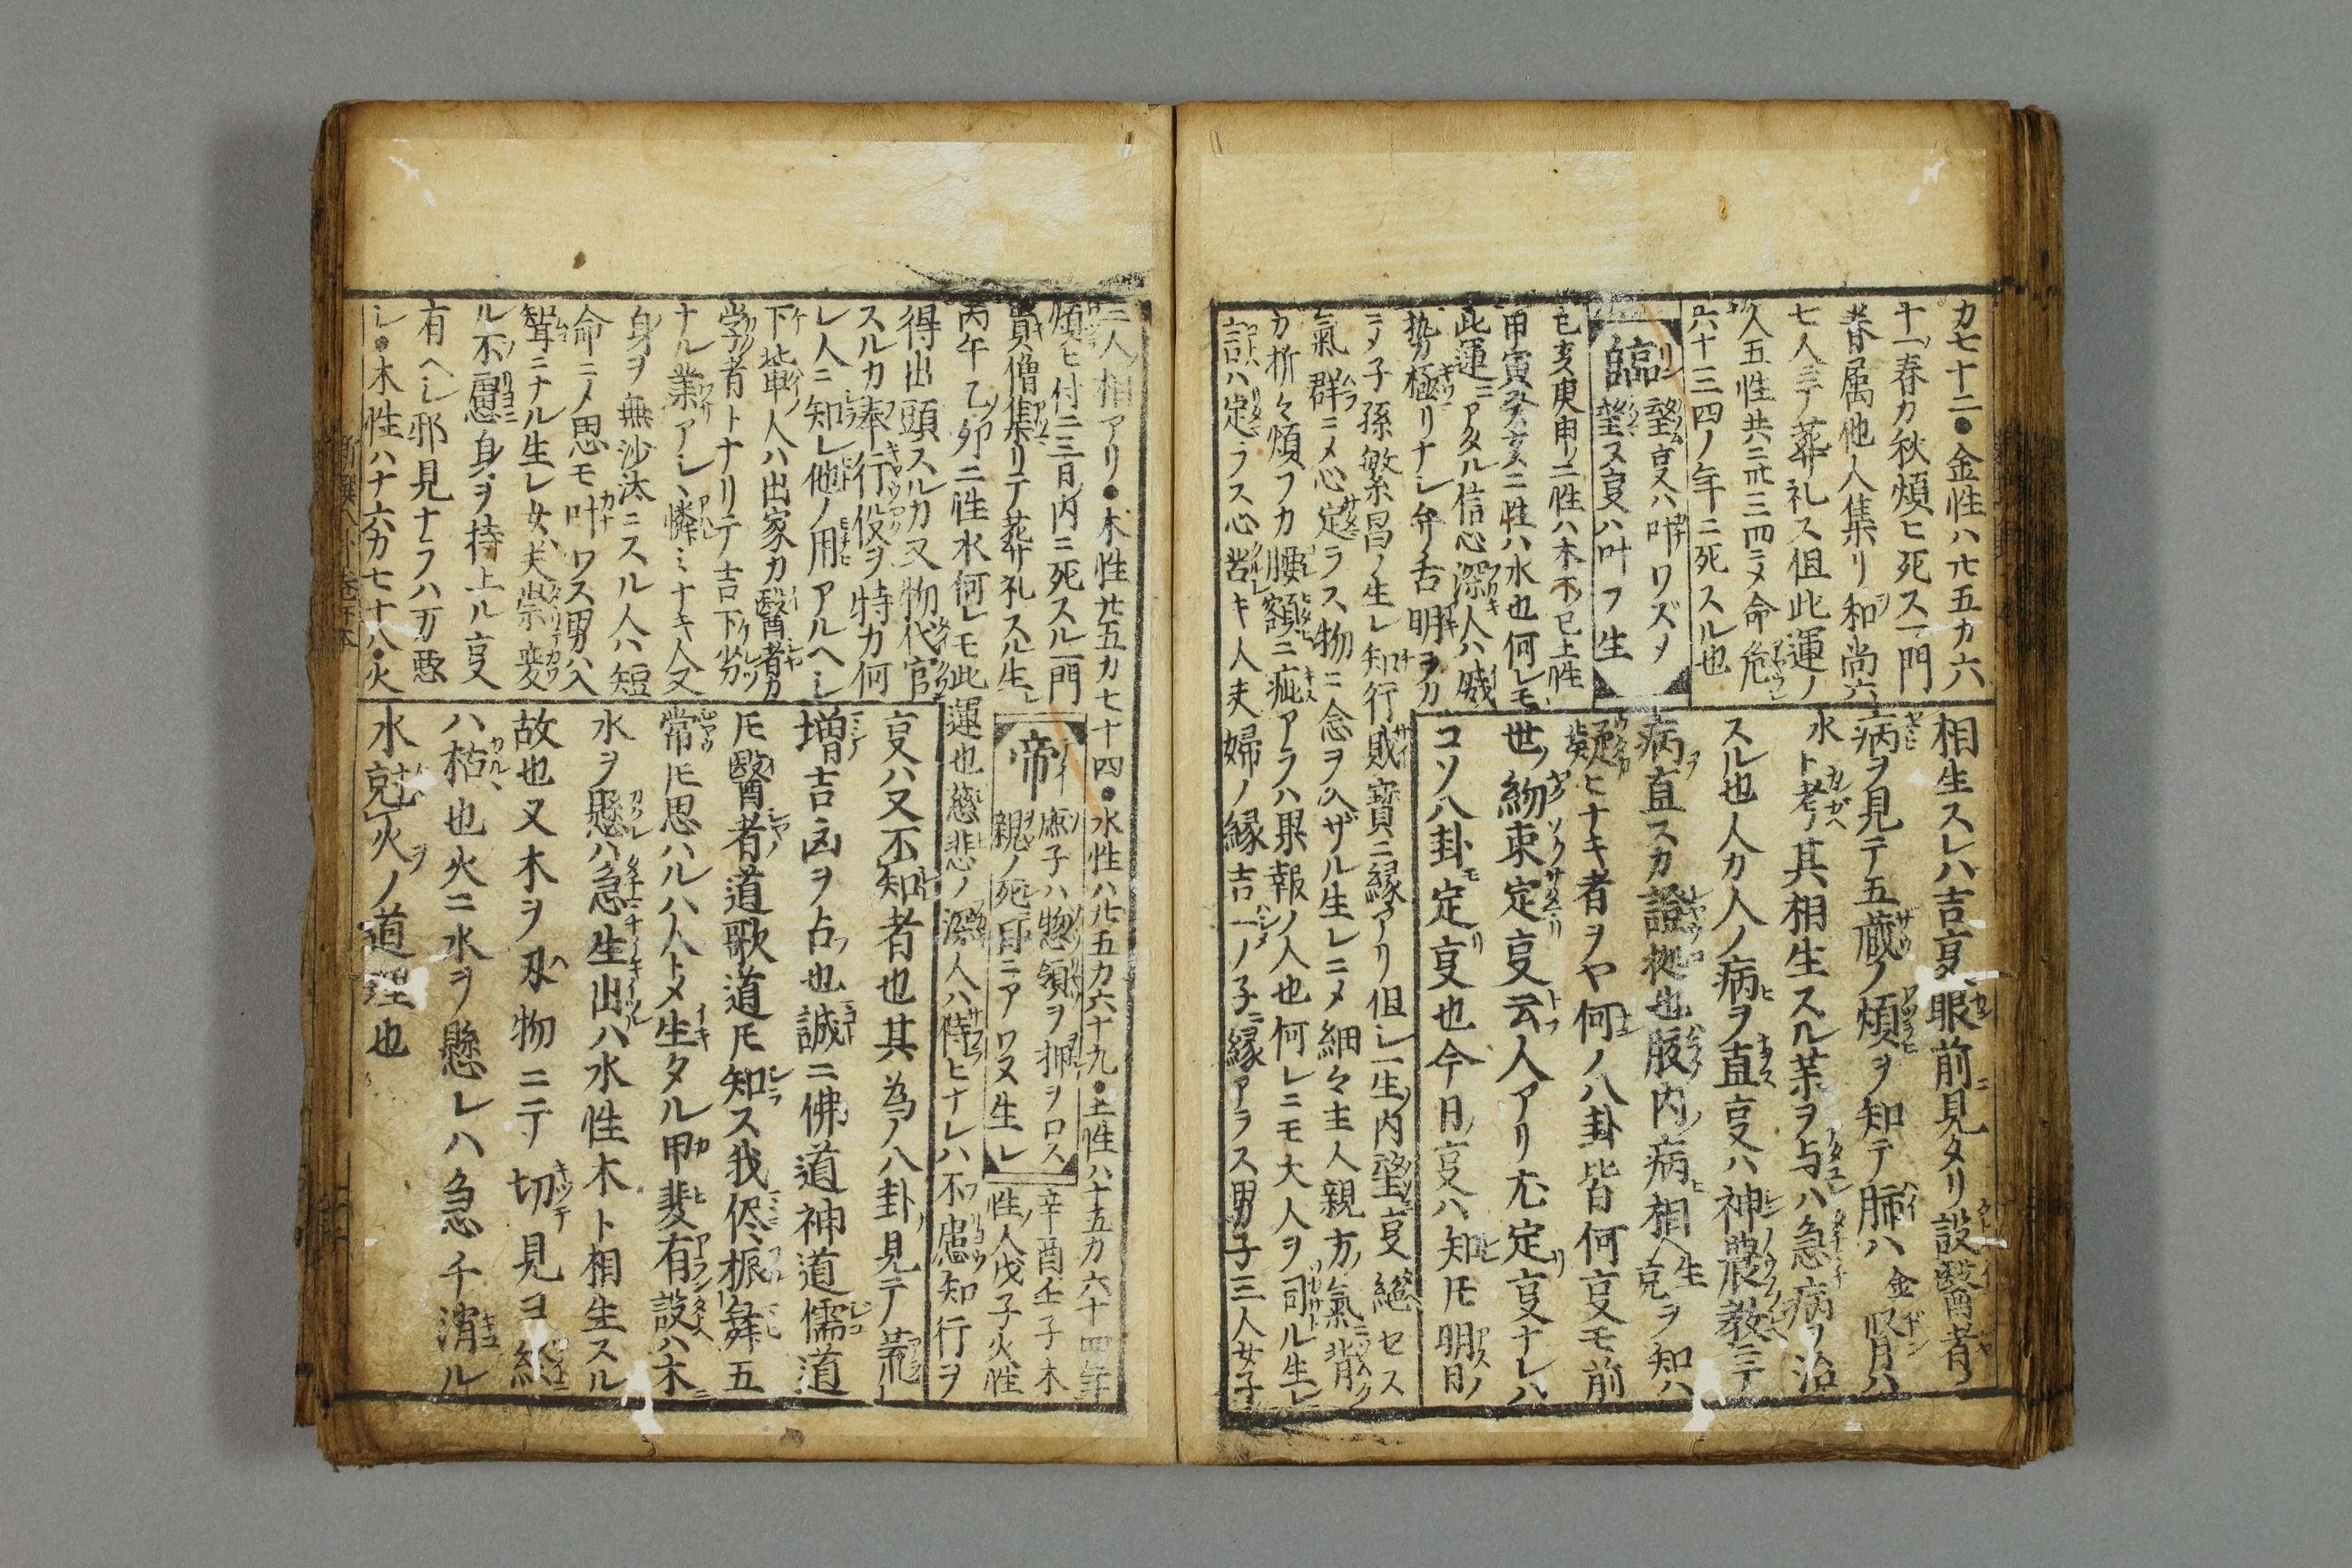 カ七十二●金性ハ廿五カ六
十一春カ秋煩ヒ死ス一門
眷属他人集リ和尚六
七人ニテ葬礼ス但此運ノ
人五性共ニ卅三四ニメ命危
六十三四ノ年ニ死スル也
臨
望㕝ハ叶ワズメ
望ス㕝ハ叶フ生
己亥庚申ノ二性ハ木不ノ已上性
甲寅癸亥ニ性ハ水也何レモ
此運ニアタル信心深人ハ
勢極リナシ弁舌明ヲカ
ニメ子孫繁昌ノ生レ知行財宝ニ縁アリ但シ一生ノ内望㕝絶セス
氣群ニメ心定ラス物ニ念ヲ入ザル生レニメ細々主人親方氣背
カ折々煩フカ腰額ニ疵アラハ果報ノ人也何レニモ大人ヲ司ル生レ
言ハ定ラス心苦キ人夫婦ノ縁吉一ノ子ニ縁アラス男子三人女子
相生スレハ吉㕝眼前ニ見タリ設醫者ノ
病ヲ見テ五蔵ノ煩ヲ知テ肺ハ金
水ト考ヘ其相生スル薬ヲ与ハ急病ヲ治
スル也人カ人ノ病ヲ直㕝ハ神農教ニテ
病直スカ證拠也腹内ノ病相生克ヲ知ハ
疑ヒナキ者ヲヤ何ノ八卦皆何㕝モ前
世ノ約束定㕝云人アリ尤定㕝ナレハ
コソ八卦モ定㕝也今日ノ㕝ハ知ヒ明日ノ
二人ノ相アリ●木性廿五カ七十四●水性ハ廿五カ六十九●土性ハ十五カ六十四年
煩ヒ付二三日ノ内ニ死スル一門
貴僧集リテ葬礼スル生レ
帝
庶子ハ惣領ヲ押ヲロス
親ノ死目ニアワヌ生レ
辛酉壬子木
性ノ人戊子火性
丙午乙卯ニ性水何レモ此運也慈悲ノ深人ハ侍ヒナレハ不慮知行ヲ
得出頭スルカ又物代官
スルカ奉行役ヲ特カ何
レ人ニ知レ他ノ用アルヘシ
下輩人ハ出家カ醫者カ
学者トナリテ吉下劣
ナル業アレハ憐ミナキ人又
身ヲ無沙汰ニスル人ハ短
命ニメ思モ叶ワス男ハ入
聟ニナル生レ女ハ夫祟変
ル不慮身ヲ持上ル㕝
有ヘシ邪見ナラハ万悪
シ●木性ハ十六カ七十八●火
㕝ハ又不知者也其為ノ八卦ノ見テ
増吉凶ヲ占也誠ニ佛道神道儒道
𪜈醫者道歌道𪜈知ス我侭振舞五
常𪜈思ハルハ人トメ生タル甲斐有設ハ木ニ
水ヲ懸ハ急生出ハ水性木ト相生スル
故也又木ヲ刄物ニテ切見ヨ
ハ枯也火ニ水ヲ懸レハ急チ消ル
水克火ノ道理也
新撰八卦巻下本